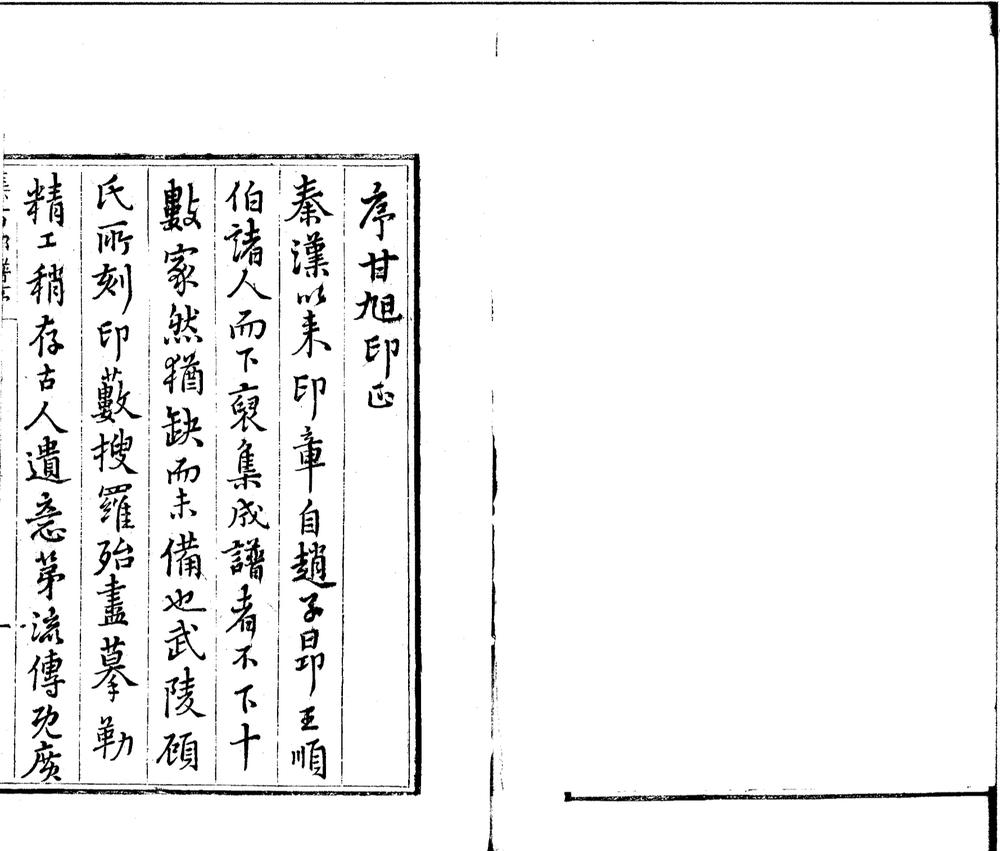 序甘旭印正
秦漢以来印章自趙子昂王順
伯諸人而下裒集成譜者不下十
數家然猶缺而未備也武陵顧
氏所刻印藪搜羅殆盡摹勒
精工稍存古人遺意第流傳既廣